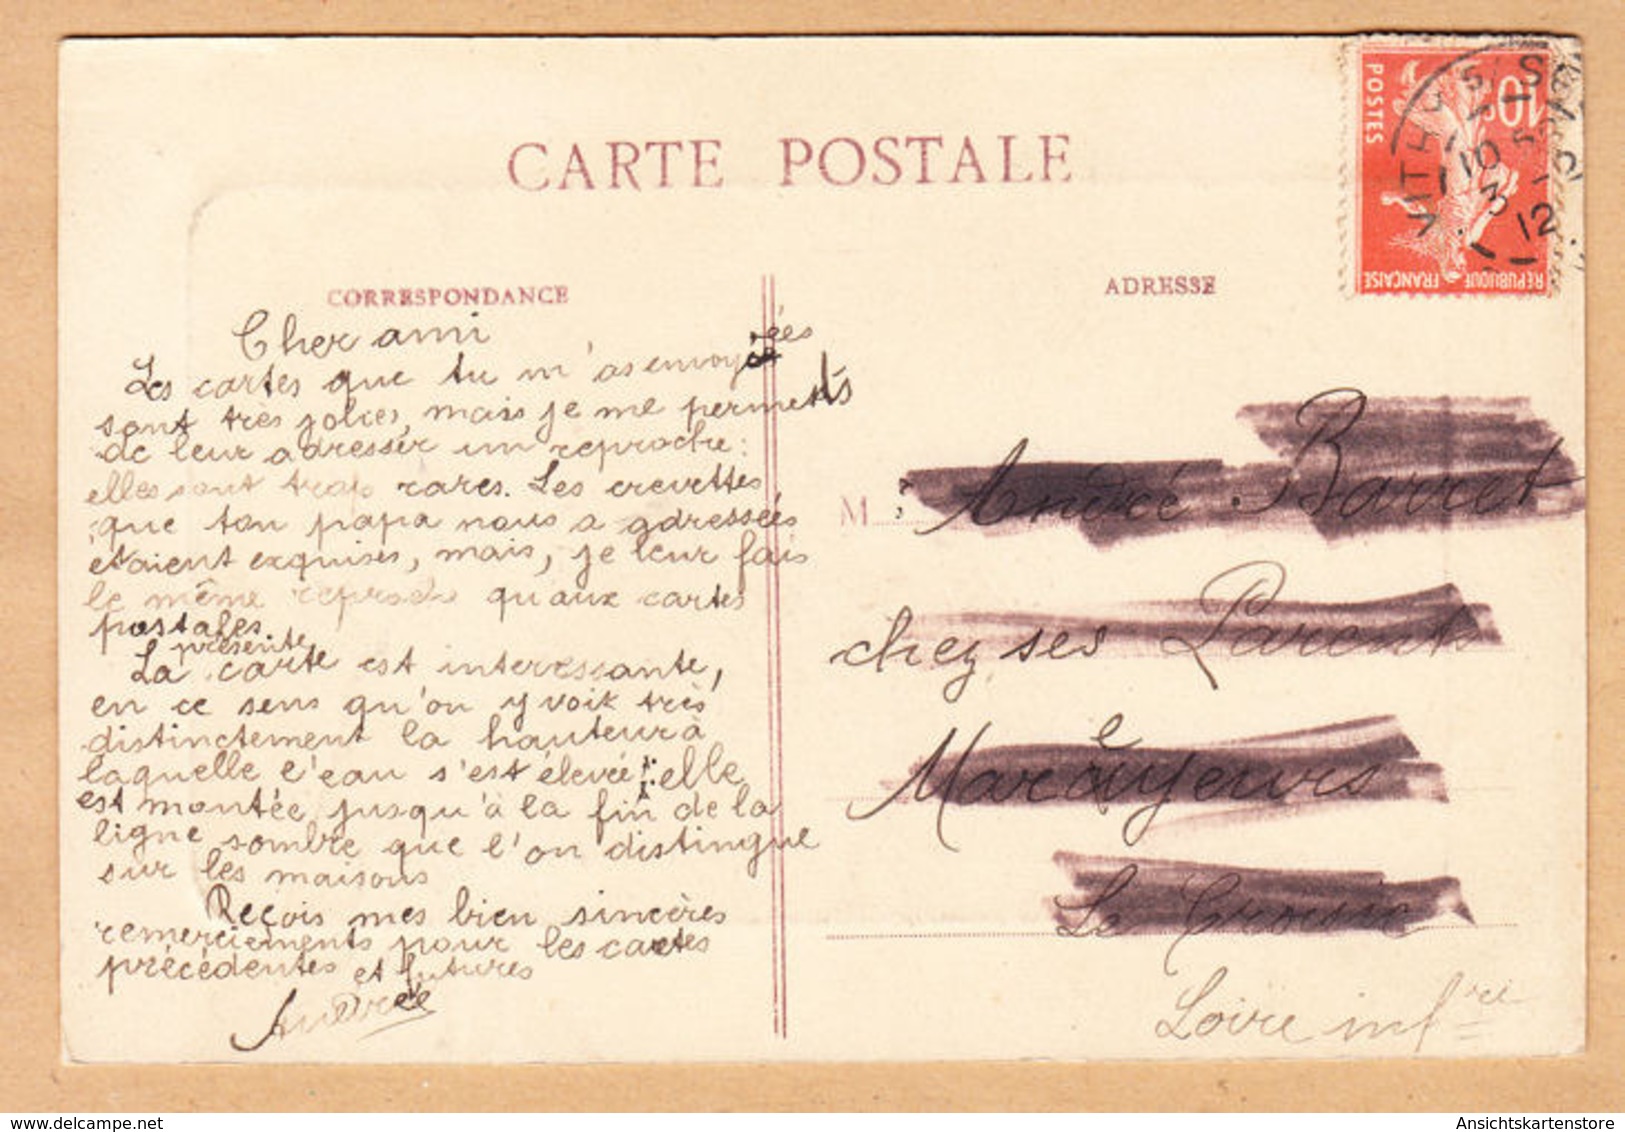 CARTE POSTALE
CORRESPONDANCE
Cher ami
Les cartes que tu m'as envoyées
sont très jolies, mais je me permets
de leur adresser un reproche:
elles sont trop rares. Les crevettes
que ton papa nous a adressées
étaient exquises, mais, je leur fais
le même reproche qu'aux cartes
postales.
présente
La carte est interessante,
en ce sens qu'on y voit très
distinctement la hauteur à
laquelle l'eau s'est élevée: elle
est montée jusqu'à la fin de la
ligne sombre que l'on distingue
sur les maisons
Reçois mes bien sincères
remerciements pour les cartes
précédentes et futures
André
ADRESSE
M André Barret
chez ses Parents
Mareyeurs
Le Croisic
Loire infre
POSTES
10c
REPUBLIQUE FRANÇAISE
VITRY S/ SEINE
10
3
12
Ansichtskartenstore